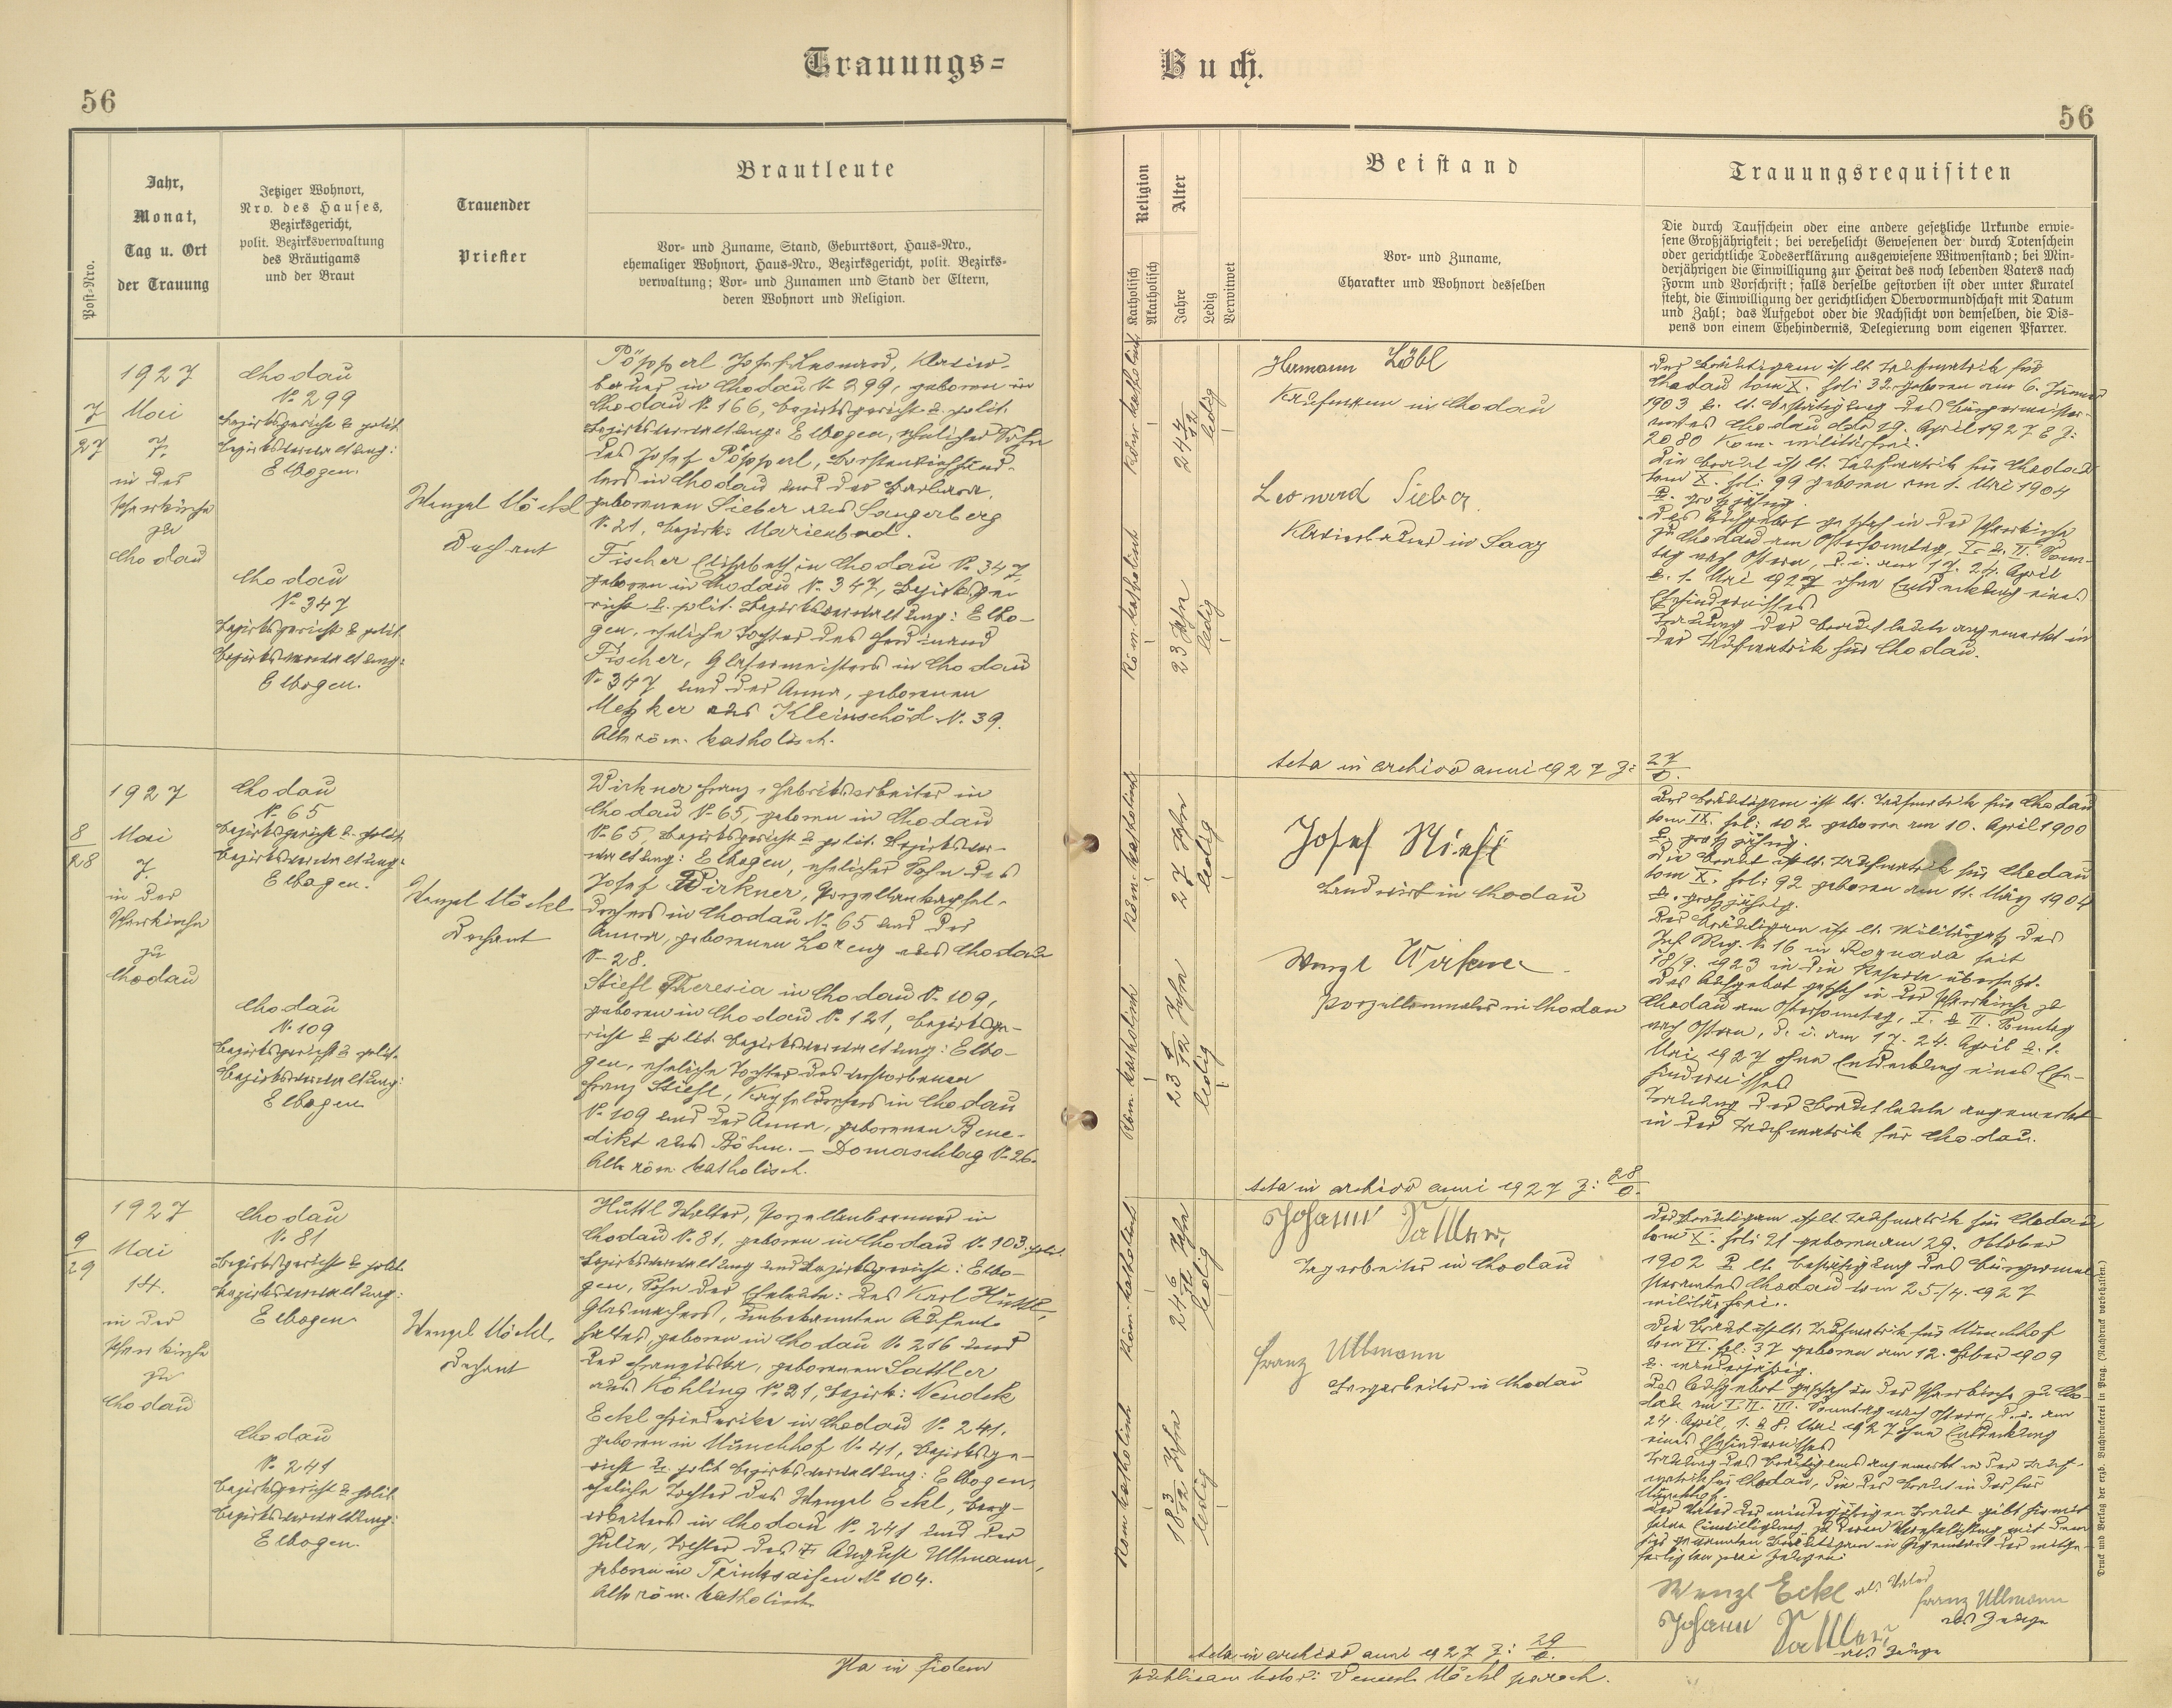 Trauungs=
Buch.
56
56
Post-Nro.
Jahr,
Monat,
Tag u. Ort
der Trauung
Jetziger Wohnort,
Nro. des Hauses,
Bezirksgericht,
polit. Bezirksverwaltung
des Bräutigams
und der Braut
Trauender
Priester
Brautleute
Vor- und Zuname, Stand, Geburtsort, Haus-Nro.,
ehemaliger Wohnort, Haus-Nro., Bezirksgericht, polit. Bezirks-
verwaltung; Vor- und Zunamen und Stand der Eltern,
deren Wohnort und Religion.
Religion
Katholisch
Akatholisch
Alter
Jahre
Ledig
Verwitwet
Beistand
Vor- und Zuname,
Charakter und Wohnort desselben
Trauungsrequisiten
Die durch Taufschein oder eine andere gesetzliche Urkunde erwie-
sene Großjährigkeit; bei verehelicht Gewesenen der durch Totenschein
oder gerichtliche Todeserklärung ausgewiesene Witwenstand; bei Min-
derjährigen die Einwilligung zur Heirat des noch lebenden Vaters nach
Form und Vorschrift; falls derselbe gestorben ist oder unter Kuratel
steht, die Einwilligung der gerichtlichen Obervormundschaft mit Datum
und Zahl; das Aufgebot oder die Nachsicht von demselben, die Dis-
pens von einem Ehehindernis, Delegierung vom eigenen Pfarrer.
7
27
1927
Mai
7.
in der
Pfarrkirche
zu
Chodau
Chodau
N. 299
Bezirksgericht & polit.
Bezirksverwaltung:
Elbogen.
Chodau
N. 347
Bezirksgericht & polit.
Bezirksverwaltung:
Elbogen.
Wenzel Möckl
Dechant
Pöpperl Josef Leonard, Klavier-
bauer in Chodau N. 299, geboren in
Chodau N. 166, Bezirksgericht & polit.
Bezirksverwaltung: Elbogen, ehelicher Sohn
des Josef Pöpperl,
lers in Chodau und der Barbara,
geborenen Sieber aus Sangerberg
N. 21, Bezirk: Marienbad.
Fischer Elisabeth in Chodau N. 347,
geboren in Chodau N. 347, Bezirksge-
richt & polit. Bezirksverwaltung: Elbo-
gen, eheliche Tochter des Ferdinand
Fischer, Glasermeisters in Chodau
N. 347 und der Anna, geborenen
Metzker aus Kleinschöd N. 39.
Alle röm. katholisch.
Röm. katholisch
24 4/12
ledig
Röm. katholisch
23 Jahre
ledig
Hermann Löbl
Kaufmann in Chodau
Leonard Sieber
Klavierbauer in Saaz
Acta in archivo anni 1927 Z: 27/o.
Der Bräutigam ist lt. Taufmatrik für
Chodau tom X. fol: 32 geboren am 6. Jänner
1903 & lt. Bestätigung des Bürgermeister-
amtes Chodau dto 19. April 1927 E Z:
2080 Kom. militärfrei.
Die Braut ist lt. Taufmatrik für Chodau
tom X. fol: 99 geboren am 1. Mai 1904
& großjährig.
Das Aufgebot geschah in der Pfarrkirche
zu Chodau am Ostersonntag, I. & II. Sonn-
tag nach Ostern, d. i. am 17. 24. April
& 1. Mai 1927 ohne Entdeckung eines
Ehehindernisses
Trauung der Brautleute angemerkt in
der Taufmatrik für Chodau.
8
28
1927
Mai
7.
in der
Pfarrkirche
zu
Chodau
Chodau
N. 65
Bezirksgericht & polit.
Bezirksverwaltung:
Elbogen.
Chodau
N. 109
Bezirksgericht & polit.
Bezirksverwaltung:
Elbogen
Wenzel Möckl
Dechant
Wirkner Franz, Fabriksarbeiter in
Chodau N. 65, geboren in Chodau
N. 65, Bezirksgericht & polit. Bezirksver-
waltung: Elbogen, ehelicher Sohn des
Josef Wirkner, Porzellankapsel-
drehers in Chodau N. 65 und der
Anna, geborenen Lorenz aus Chodau
N. 28.
Stiefl Theresia in Chodau N. 109,
geboren in Chodau N. 121, Bezirksge-
richt & polit. Bezirksverwaltung: Elbo-
gen, eheliche Tochter des verstorbenen
Franz Stiefl, Kapseldrehers in Chodau
N. 109 und der Anna, geborenen Bene-
dikt aus Böhm. - Domaschlag N. 26.
Alle röm. katholisch.
Röm. katholisch
27 Jahre
ledig
Röm. katholisch
23 1/12 Jahre
ledig
Josef
Landwirt in Chodau
Wenzl Wirkner
Porzellanmaler in Chodau
Acta in archivo anni 1927 Z: 28/o.
Der Bräutigam ist lt. Taufmatrik für Chodau
tom IX. fol: 102 geboren am 10. April 1900
& großjährig.
Die Braut ist lt. Taufmatrik für Chodau
tom X. fol: 92 geboren am 11. März 1904
& großjährig.
Der Bräutigam ist lt. Militärpaß des
Inf. Reg. N. 16 in seit
18/9. 1923 in die Reserve übersetzt.
Das Aufgebot geschah in der Pfarrkirche zu
Chodau am Ostersonntag, I. & II. Sonntag
nach Ostern, d. i. am 17. 24. April & 1.
Mai 1927 ohne Entdeckung eines Ehe-
hindernisses
Trauung der Brautleute angemerkt
in der Taufmatrik für Chodau.
9
29
1927
Mai
14.
in der
Pfarrkirche
zu
Chodau
Chodau
N. 81
Bezirksgericht & polit.
Bezirksverwaltung:
Elbogen
Chodau
N. 241
Bezirksgericht & polit.
Bezirksverwaltung:
Elbogen.
Wenzel Möckl
Dechant
Hüttl Walter, Porzellanbrenner in
Chodau N. 81, geboren in Chodau N. 103, polit.
Bezirksverwaltung und Bezirksgericht: Elbo-
gen, Sohn der Eheleute: des Karl Hüttl,
Glasmachers, unbekannten Aufent-
haltes, geboren in Chodau N. 216 und
der Franziska, geborenen Sattler
aus Kohling N. 21, Bezirk: Neudek
Eckl Friederike in Chodau N. 241,
geboren in Münchhof N. 41, Bezirksge-
richt & polit. Bezirksverwaltung: Elbogen,
eheliche Tochter des Wenzel Eckl, Berg-
arbeiters in Chodau N. 241 und der
Julie, Tochter des August Ullmann,
geboren in Trinksaifen N. 104.
Alle röm. katholisch
Röm. katholisch
24 6/12 Jahre
ledig
Röm. katholisch
18 3/12 Jahre
ledig
Johann Sattler
Tagarbeiter in Chodau
Franz Ullmann
Bergarbeiter in Chodau
Acta in archivo anni 1927 Z: 29/o.
Der Bräutigam ist lt. Taufmatrik für Chodau
tom X. fol: 21 geboren am 29. Oktober
1902 & lt. Bestätigung des Bürgermei-
steramtes Chodau vom 25/4. 1927
militärfrei.
Die Braut ist lt. Taufmatrik für Münchhof
tom VI. fol: 37 geboren am 12. Feber 1909
& minderjährig.
Das Aufgebot geschah in der Pfarrkirche zu Cho-
dau am I. II. III. Sonntag nach Ostern, d. i. am
24. April, 1. & 8. Mai 1927 ohne Entdeckung
eines Ehehindernisses
Trauung des Bräutigams angemerkt in der Tauf-
matrik für Chodau, die der Braut in der für
Münchhof.
Der Vater der minderjährigen Braut gibt hiermit
seine Einwilligung zu deren Verehelichung mit dem
hier genannten Bräutigam in Gegenwart der mitge-
fertigten zwei Zeugen:
Wenzl Eckl als Vater
Franz Ullmann
als Zeuge
Johann Sattler
als Zeuge
Ita in fidem
Wenzl Möckl paroch.
Druck und Verlag der erzb. Buchdruckerei in Prag. (Nachdruck vorbehalten.)